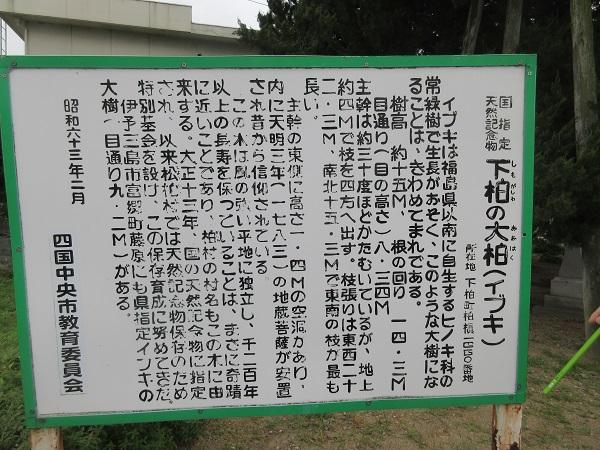 国指定
天然記念物
下柏の大柏(イブキ)
しもがしわ
おおはく
所在地 下柏町柏橋
イブキは福島県以南に自生するヒノキ科の
常緑樹で生長がおそく、このような大樹にな
ることは、きわめてまれである。
樹高 約十五M、根の回り 一四・三M
目通り(目の高さ)八・三四M
主幹は約三十度ほどかたむいているが、地上
約四Mで枝を四方へ出す。枝張りは東西二十
二・三M、南北十五・三Mで東南の枝が最も
長い。
主幹の東側に高さ一・四Mの空洞があり、
内に天明三年(一七八三)の地蔵菩薩が安置
され昔から信仰されている
この木は風の強い平地に独立し、千二百年
以上の長寿を保っていることは、まさに奇蹟
に近いことであり、柏村の村名もこの木に由
来する。大正十三年、国の天然記念物に指定
され、以来松柏村では天然記念物保存のため
特別基金を設け、この保存育成に努めてきた。
伊予三島市富郷町藤原にも県指定イブキの
大樹(目通り九・二M)がある。
昭和六十三年二月
四国中央市教育委員会